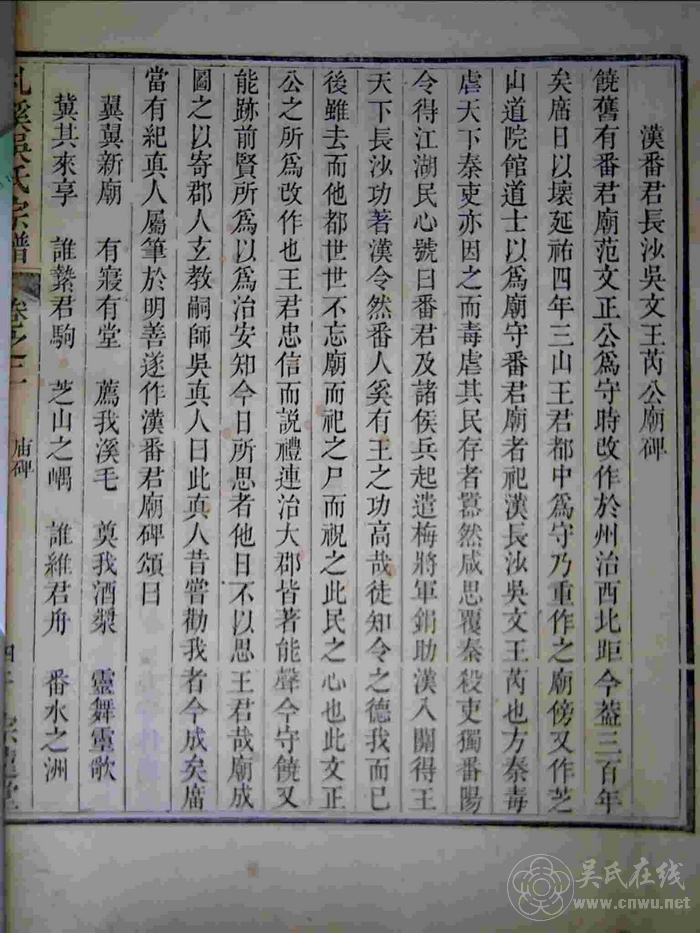 漢番君長沙吳文王芮公廟碑
饒舊有番君廟范文正公爲守時改作於州治西北距今葢三百年
矣廢日以壞延祐四年三山王君都中爲守乃重作之廟傍又作芝
山道院館道士以爲廟守番君廟者祀漢長沙吳文王芮也方秦毒
虐天下秦吏亦因之而毒虐其民存者嚣然咸思覆秦殺吏獨番陽
令得江湖民心號曰番君及諸侯兵起遣梅將軍鋗助漢入關得王
天下長沙功著漢令然番人奚有王之功高哉徒知令之德我而已
後雖去而他都世世不忘廟而祀之尸而祝之此民之心也此文正
公之所爲改作也王君忠信而説禮連治大郡皆著能聲今守饒又
能跡前賢所爲以爲治安知今日所思者他日不以思王君哉廟成
圖之以寄郡人玄教嗣師吳真人曰此真人昔嘗勸我者今成矣廢
當有紀真人屬筆於明善遂作漢番君廟碑頌曰
翼翼新廟 有寢有堂 薦我溪毛 奠我酒漿 靈舞電歌
冀其來享 誰縶君駒 芝山之嵎 誰維君舟 番水之洲
溪吳氏宗譜 卷之二 庙碑
吴氏在线
www.cnwu.net